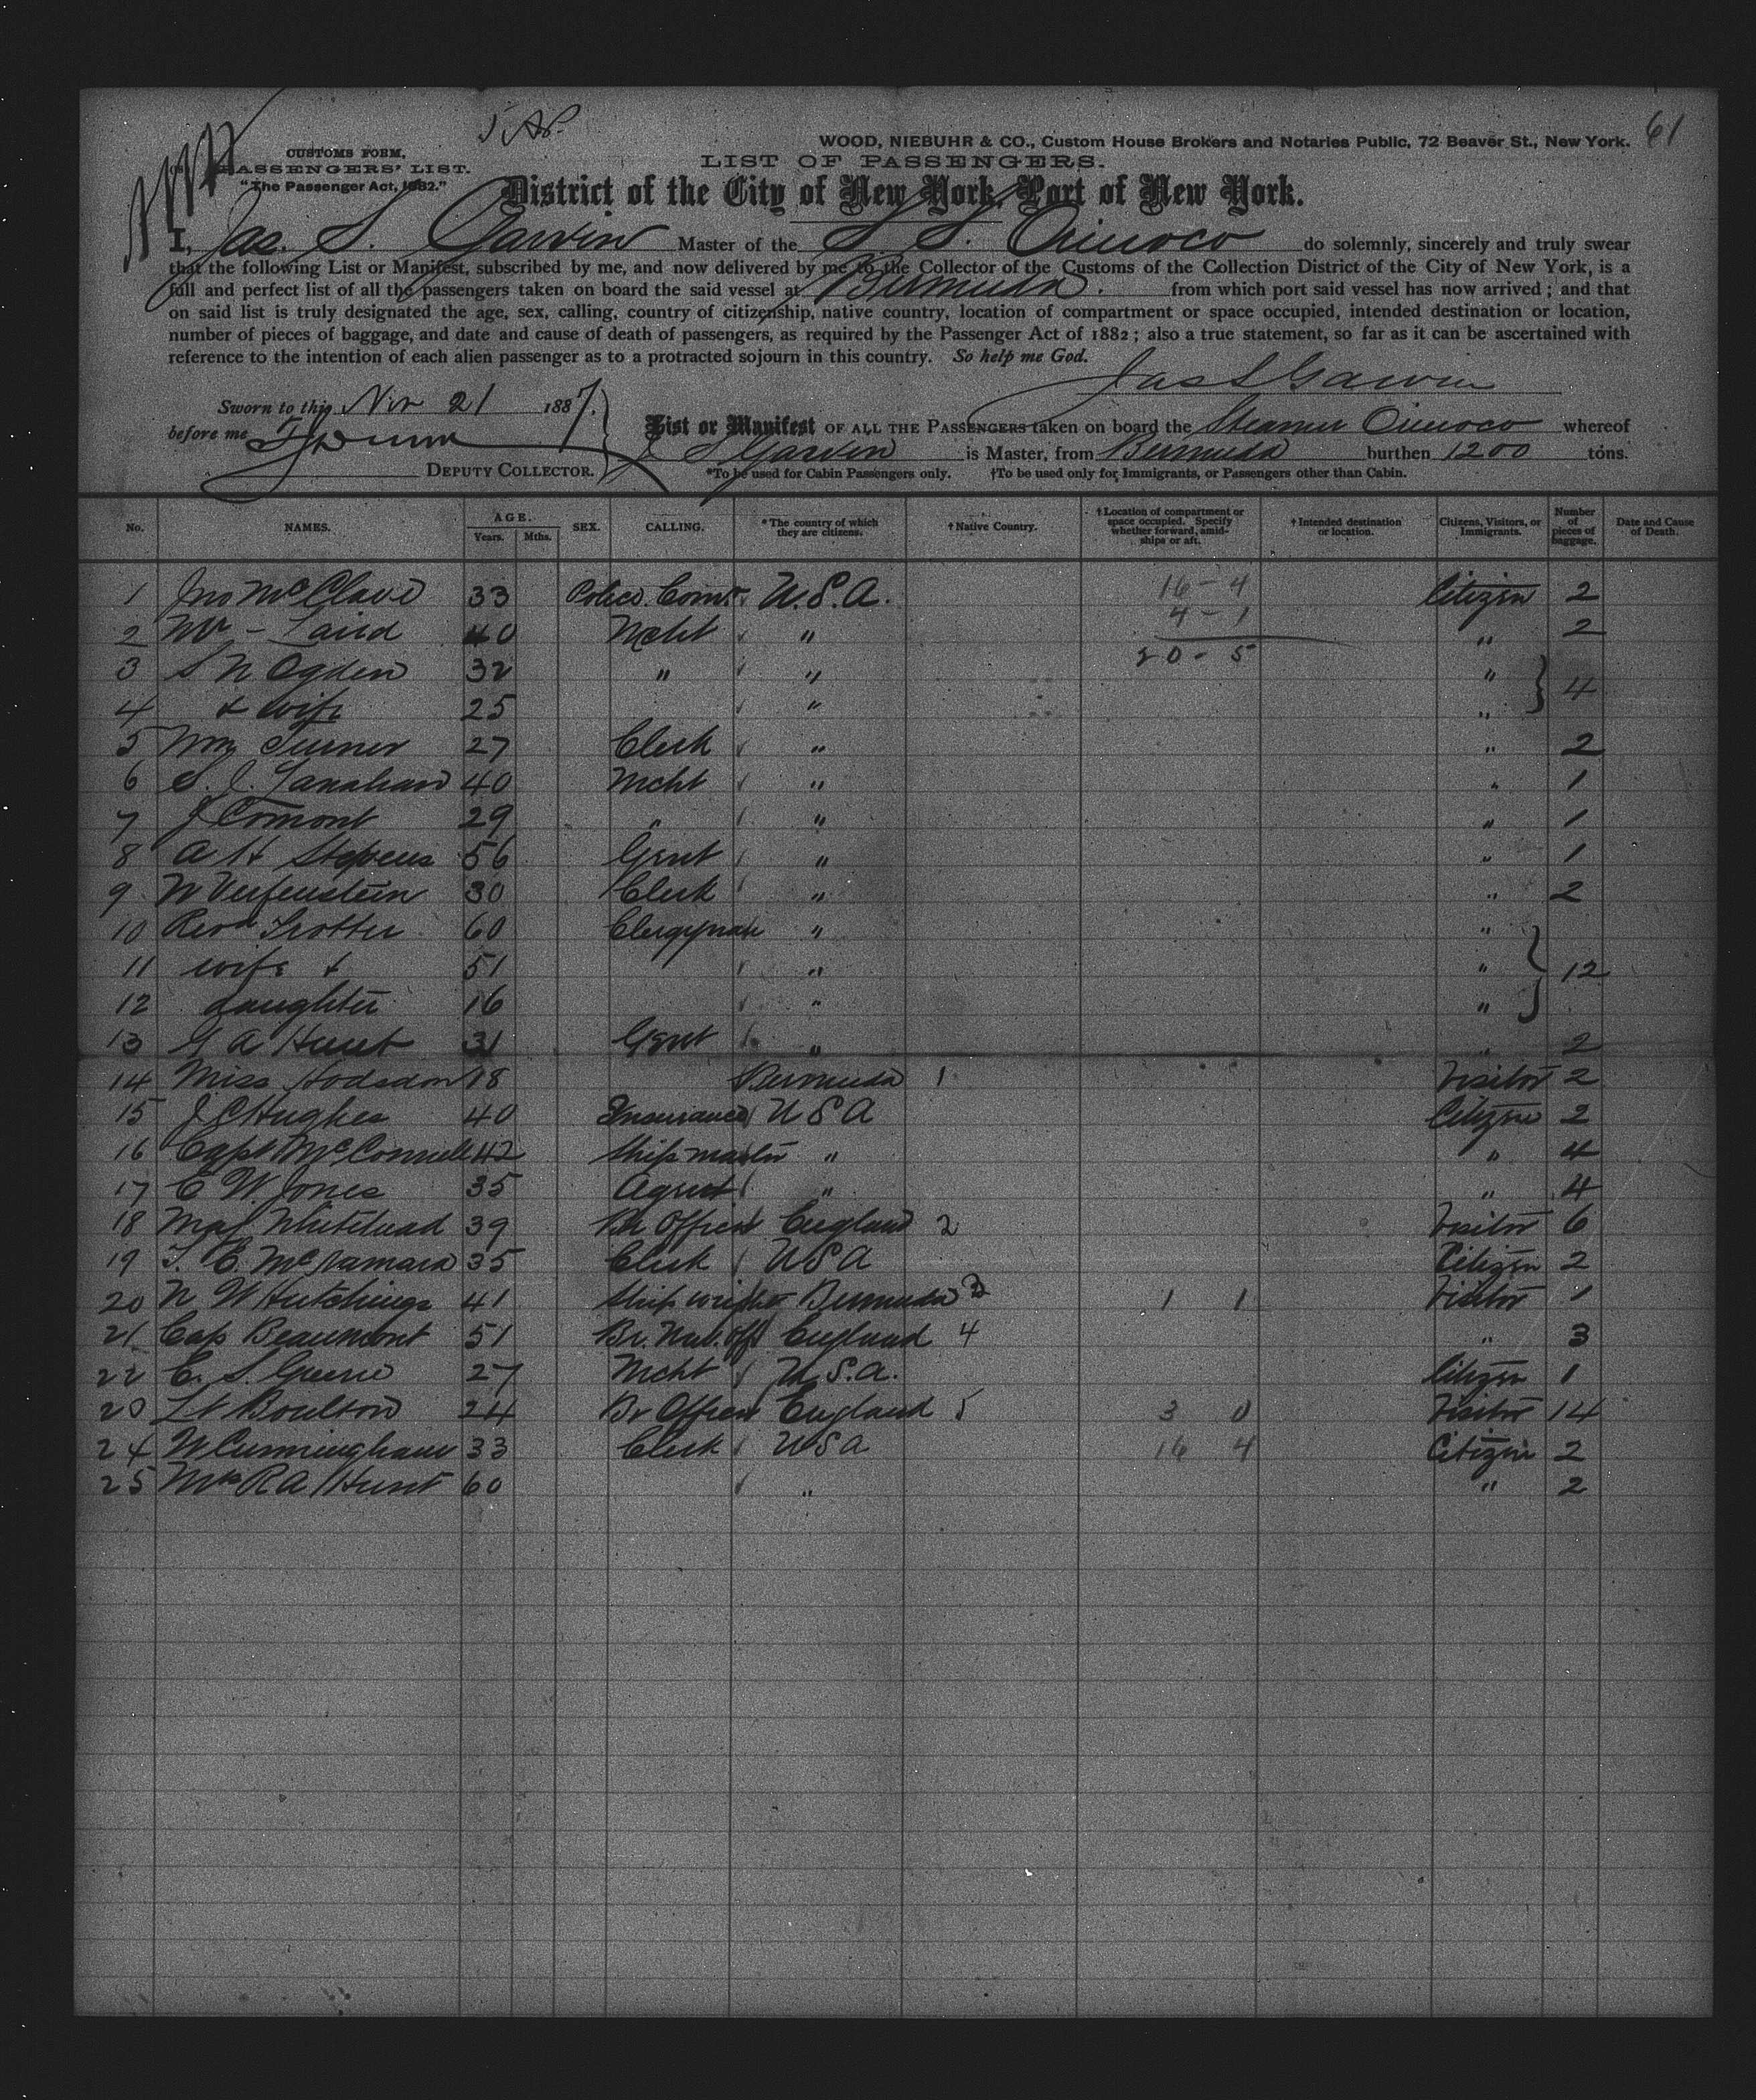 61
WOOD, NIEBUHR & CO., Custom House Brokers and Notaries Public, 72 Beaver St., New York.
CUSTOMS FORM,
PASSENGERS' LIST.
"The Passenger Act, 1882."
LIST OF PASSENGERS.
District of the City of New York, Port of New York.
I, Jas. S. Garvin Master of the S S. Orinoco do solemnly, sincerely and truly swear
that the following List or Manifest, subscribed by me, and now delivered by me to the Collector of the Customs of the Collection District of the City of New York, is a
full and perfect list of all the passengers taken on board the said vessel at Bermuda. from which port said vessel has now arrived; and that
on said list is truly designated the age, sex, calling, country of citizenship, native country, location of compartment or space occupied, intended destination or location,
number of pieces of baggage, and date and cause of death of passengers, as required by the Passenger Act of 1882; also a true statement, so far as it can be ascertained with
reference to the intention of each alien passenger as to a protracted sojourn in this country. So help me God.
Jas S Garvin
Sworn to this Nov 21 1887.
before me
DEPUTY COLLECTOR.
List or Manifest OF ALL THE PASSENGERS taken on board the Steamer Orinoco whereof
J S Garvin is Master, from Bermuda burthen 1200 tons.
*To be used for Cabin Passengers only. †To be used only for Immigrants, or Passengers other than Cabin.
No. NAMES. AGE. Years. Mths. SEX. CALLING. *The country of which they are citizens. †Native Country. †Location of compartment or space occupied. Specify whether forward, amidships or aft. †Intended destination or location. Citizens, Visitors, or Immigrants. Number of pieces of baggage. Date and Cause of Death.
1 Jno McClave 33 Police. Comr U.S.A. 16 - 4 Citizen 2
2 Wm - Laird 40 Mcht " 4 - 1 " 2
3 S N Ogden 32 " " 20 - 5 "
4 & wife 25 " " 4
5 Wm Turner 27 Clerk " " 2
6 S. J. Lanahan 40 Mcht " " 1
7 J Comont 29 " " " 1
8 A H Stephens 56 Gent " " 1
9 W 30 Clerk " " 2
10 Revd Trotter 60 Clergyman " "
11 wife & 51 " " 12
12 daughter 16 " "
13 G A Hunt 31 Gent " " 2
14 Miss Hodsdon 18 Bermuda 1 Visitor 2
15 J C Hughes 40 Insurance U S A Citizen 2
16 Capt McConnell 42 Ship master " " 4
17 E W Jones 35 Agent " " 4
18 Maj Whitehead 39 Br Officer England 2 Visitor 6
19 T. E. McNamara 35 Clerk U S A Citizen 2
20 N W Hutchings 41 Ship wright Bermuda 3 1 1 Visitor 1
21 Cap Beaumont 51 Br. Nav. Off England 4 " 3
22 E. S. Greene 27 Mcht U.S.A. Citizen 1
23 Lt Boulton 24 Br Officer England 5 3 0 Visitor 14
24 W Cunningham 33 Clerk U S A 16 4 Citizen 2
25 Mrs R A Hunt 60 " " 2